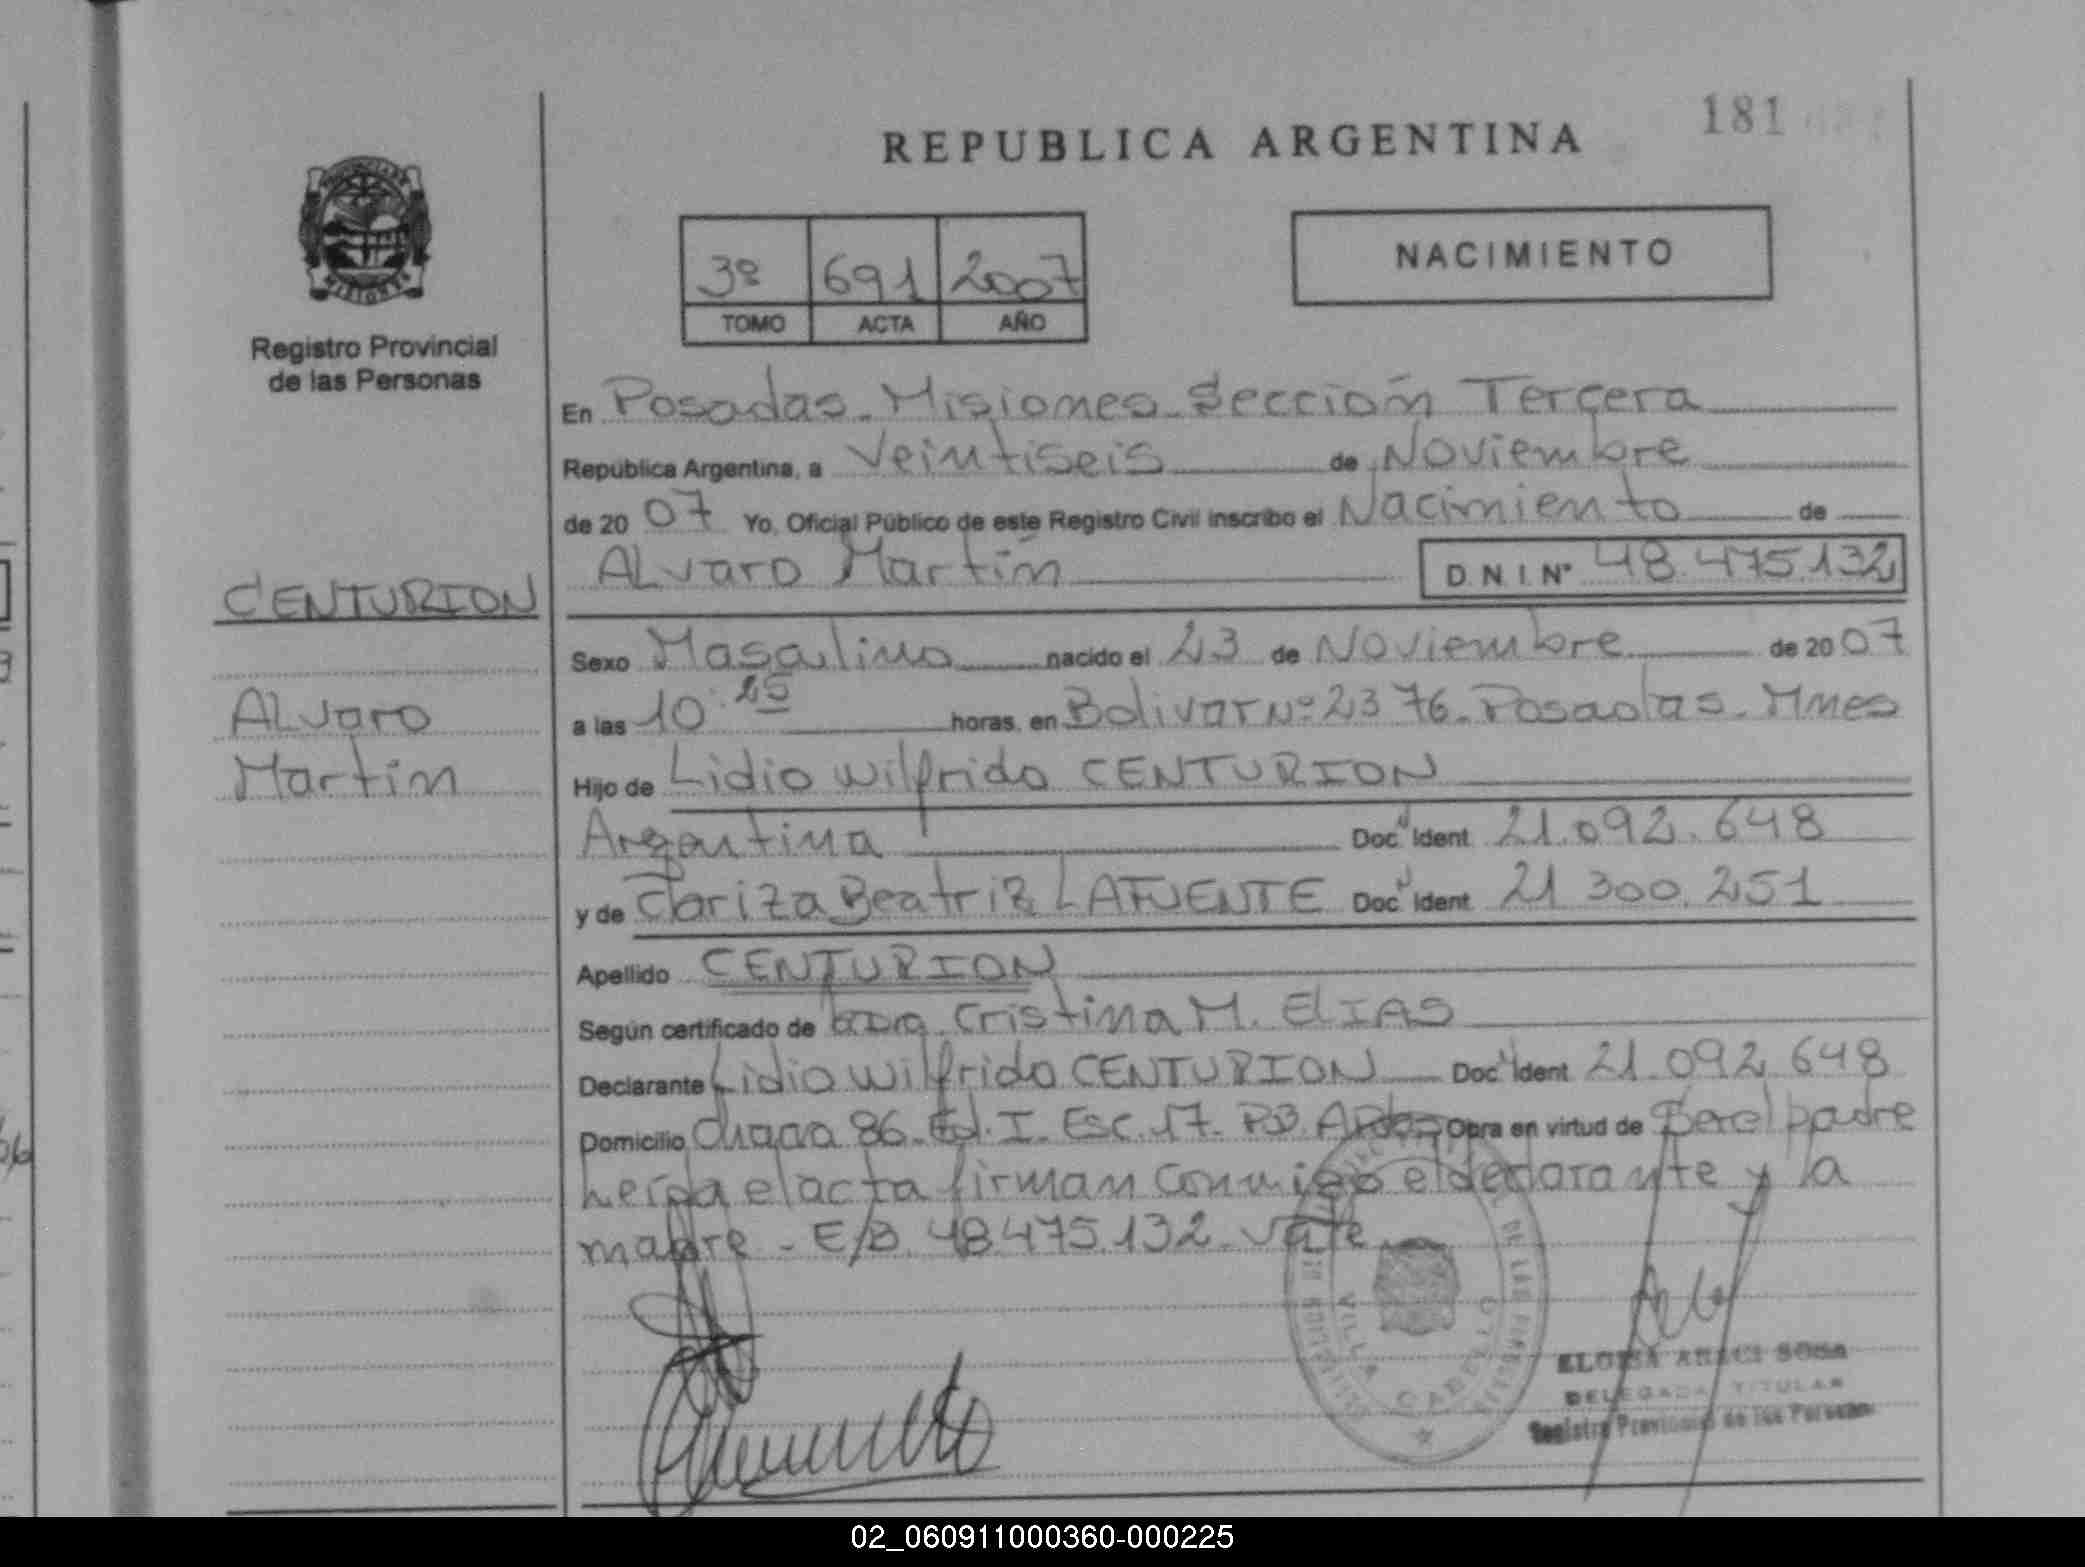 181
REPUBLICA ARGENTINA
NACIMIENTO
3º 691 2007
TOMO ACTA AÑO
MISIONES
Registro Provincial
de las Personas
En Posadas. Misiones. Sección Tercera
República Argentina, a Veintiseis de Noviembre
de 2007 Yo, Oficial Público de este Registro Civil inscribo el Nacimiento de
ALvaro Martín D.N.I.Nº 48.475.132
CENTURION
ALvaro
Martín
Sexo Masculino nacido el 23 de Noviembre de 2007
a las 10:25 horas, en Bolivar Nº 2376. Posadas. Mnes
Hijo de Lidio Wilfrido CENTURION
Argentina Doc N Ident 21.092.648
y de Clariza Beatriz LAFUENTE Doc N Ident 21 300.251
Apellido CENTURION
Según certificado de Cristina M. ELIAS
Declarante Lidio Wilfrido CENTURION Doc N Ident 21.092.648
Domicilio Chacra 86. Ed. I. Esc. 17. PB. Obra en virtud de Ser el padre
Leída el acta firman conmigo el declarante y la
madre - E/B. 48.475.132. Vale
VILLA CABELLO
ELOISA ARECI SOSA
DELEGADA TITULAR
Registro Provincial de las Personas
02_060911000360-000225